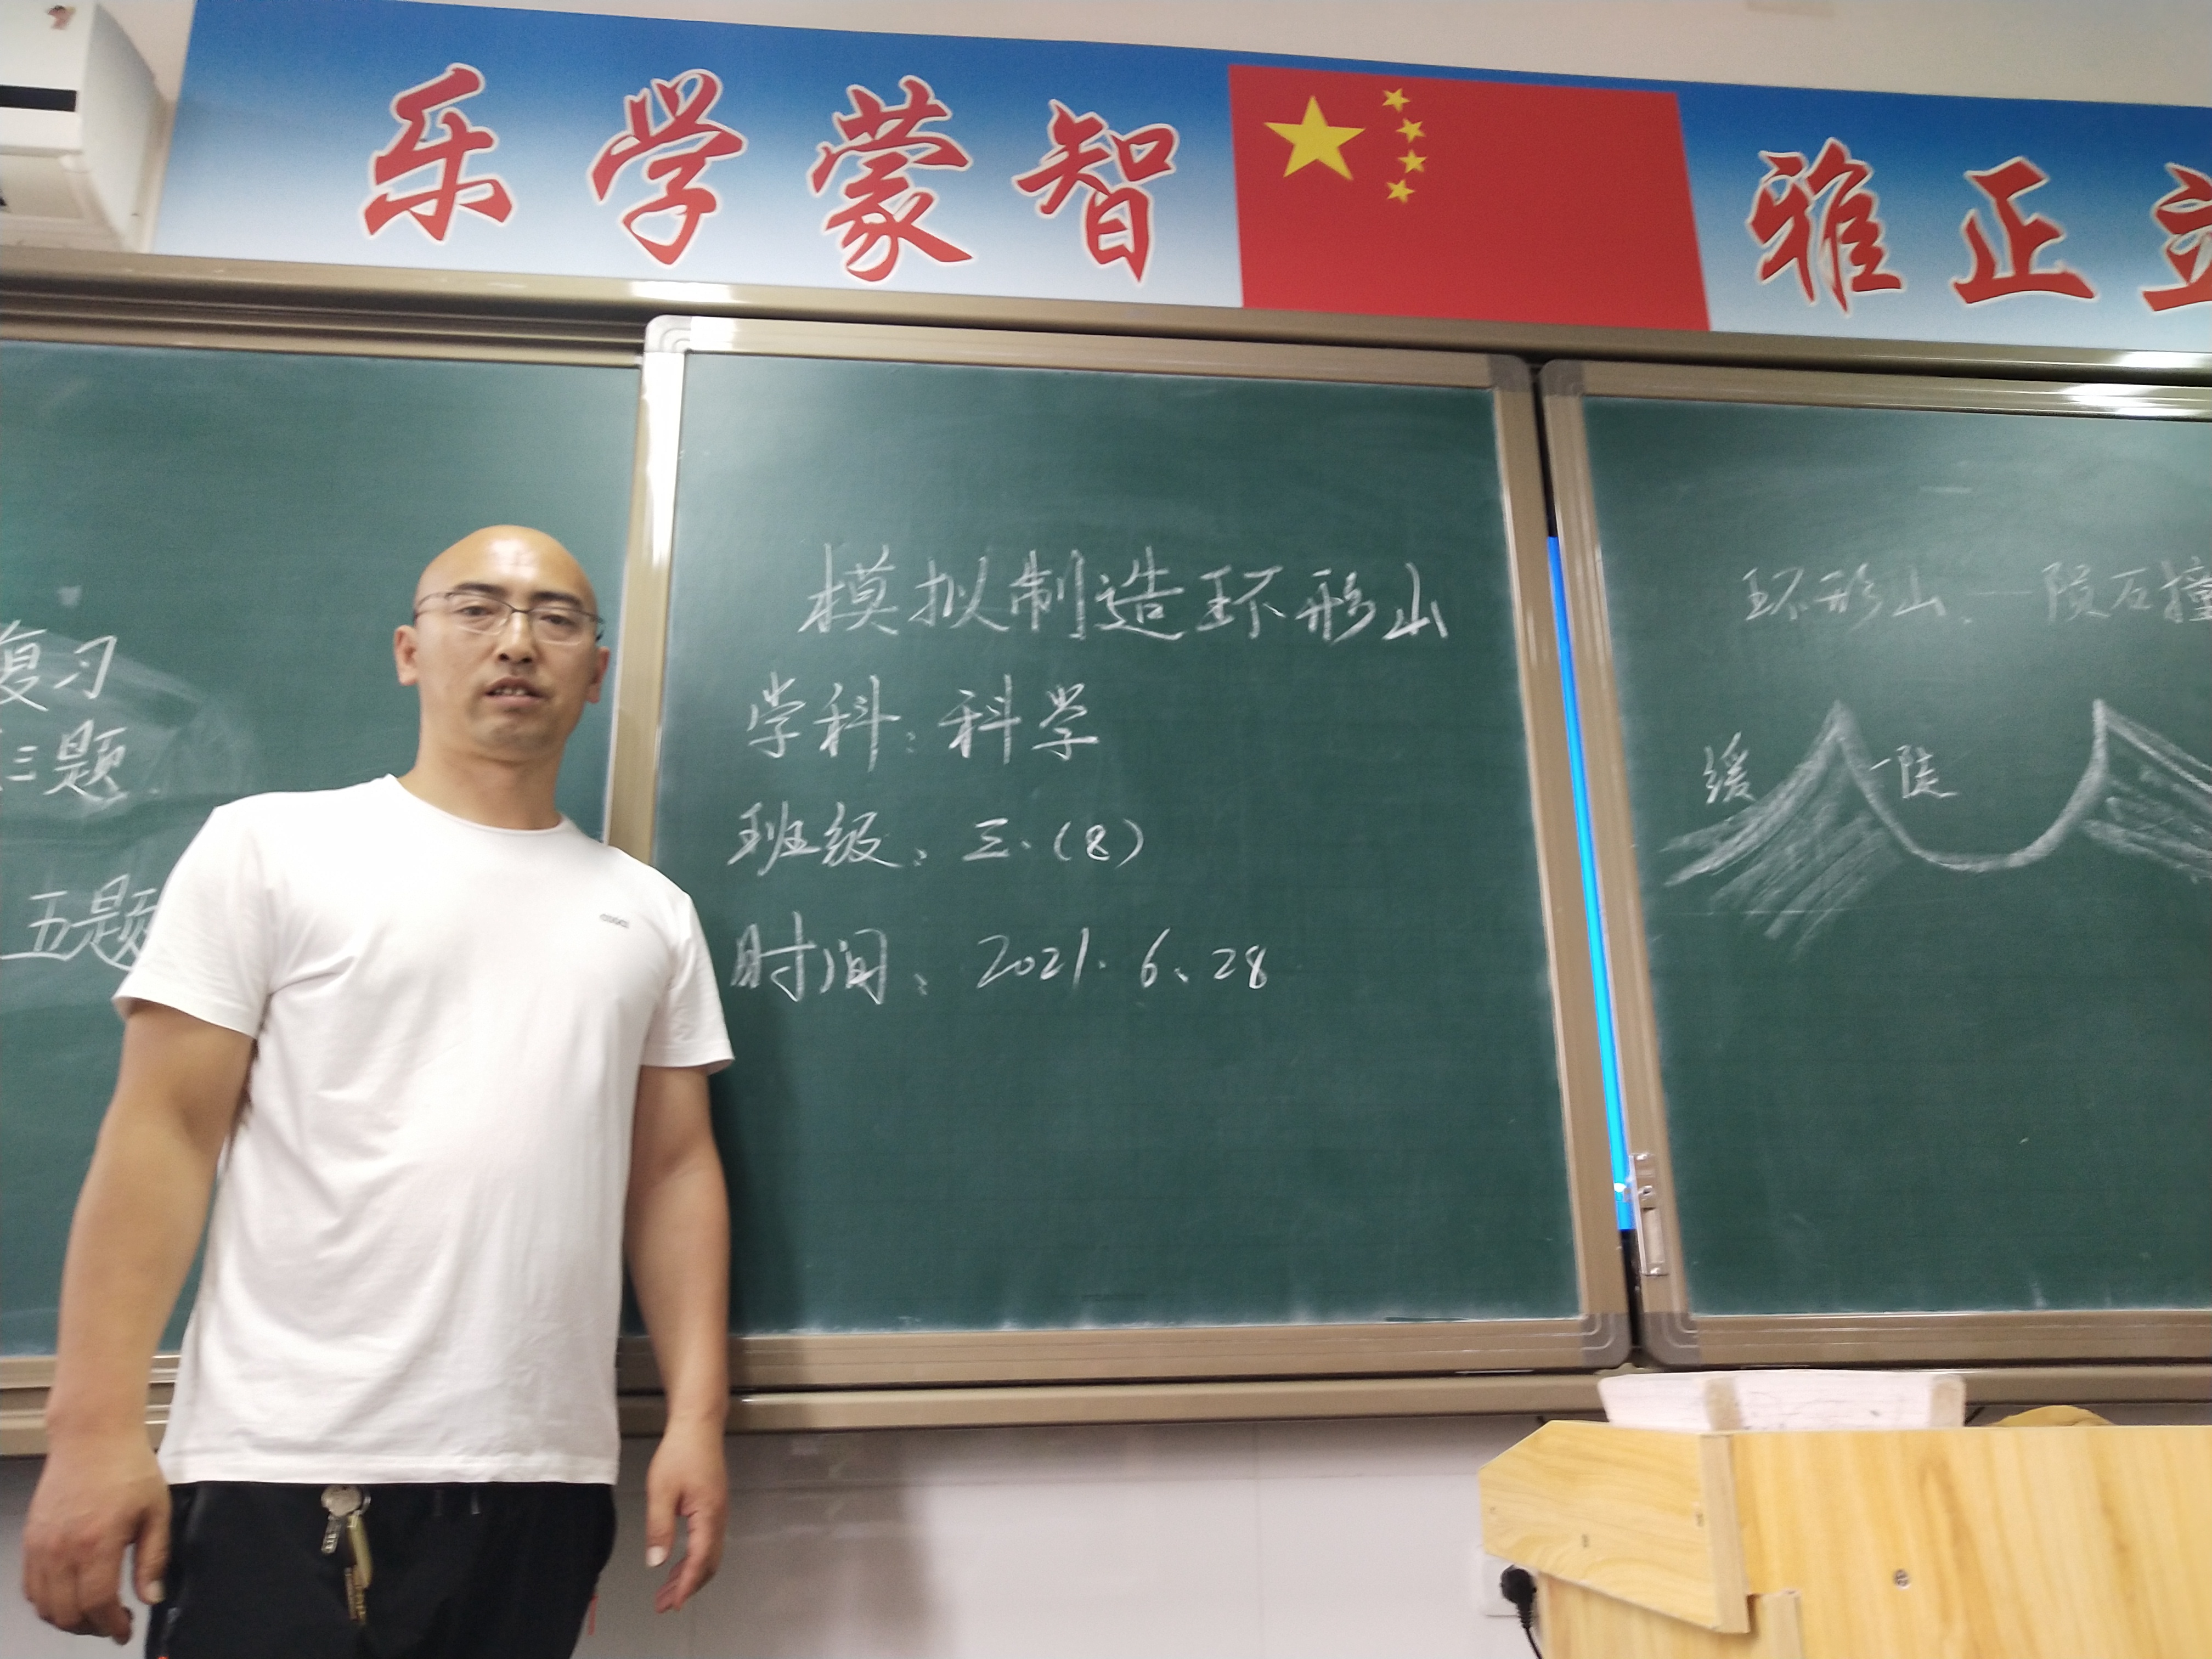 乐学蒙智 雅正立
复习
三题
五题
模拟制造环形山
学科：科学
班级：三.（8）
时间：2021.6.28
环形山 — 陨石撞
缓 陡